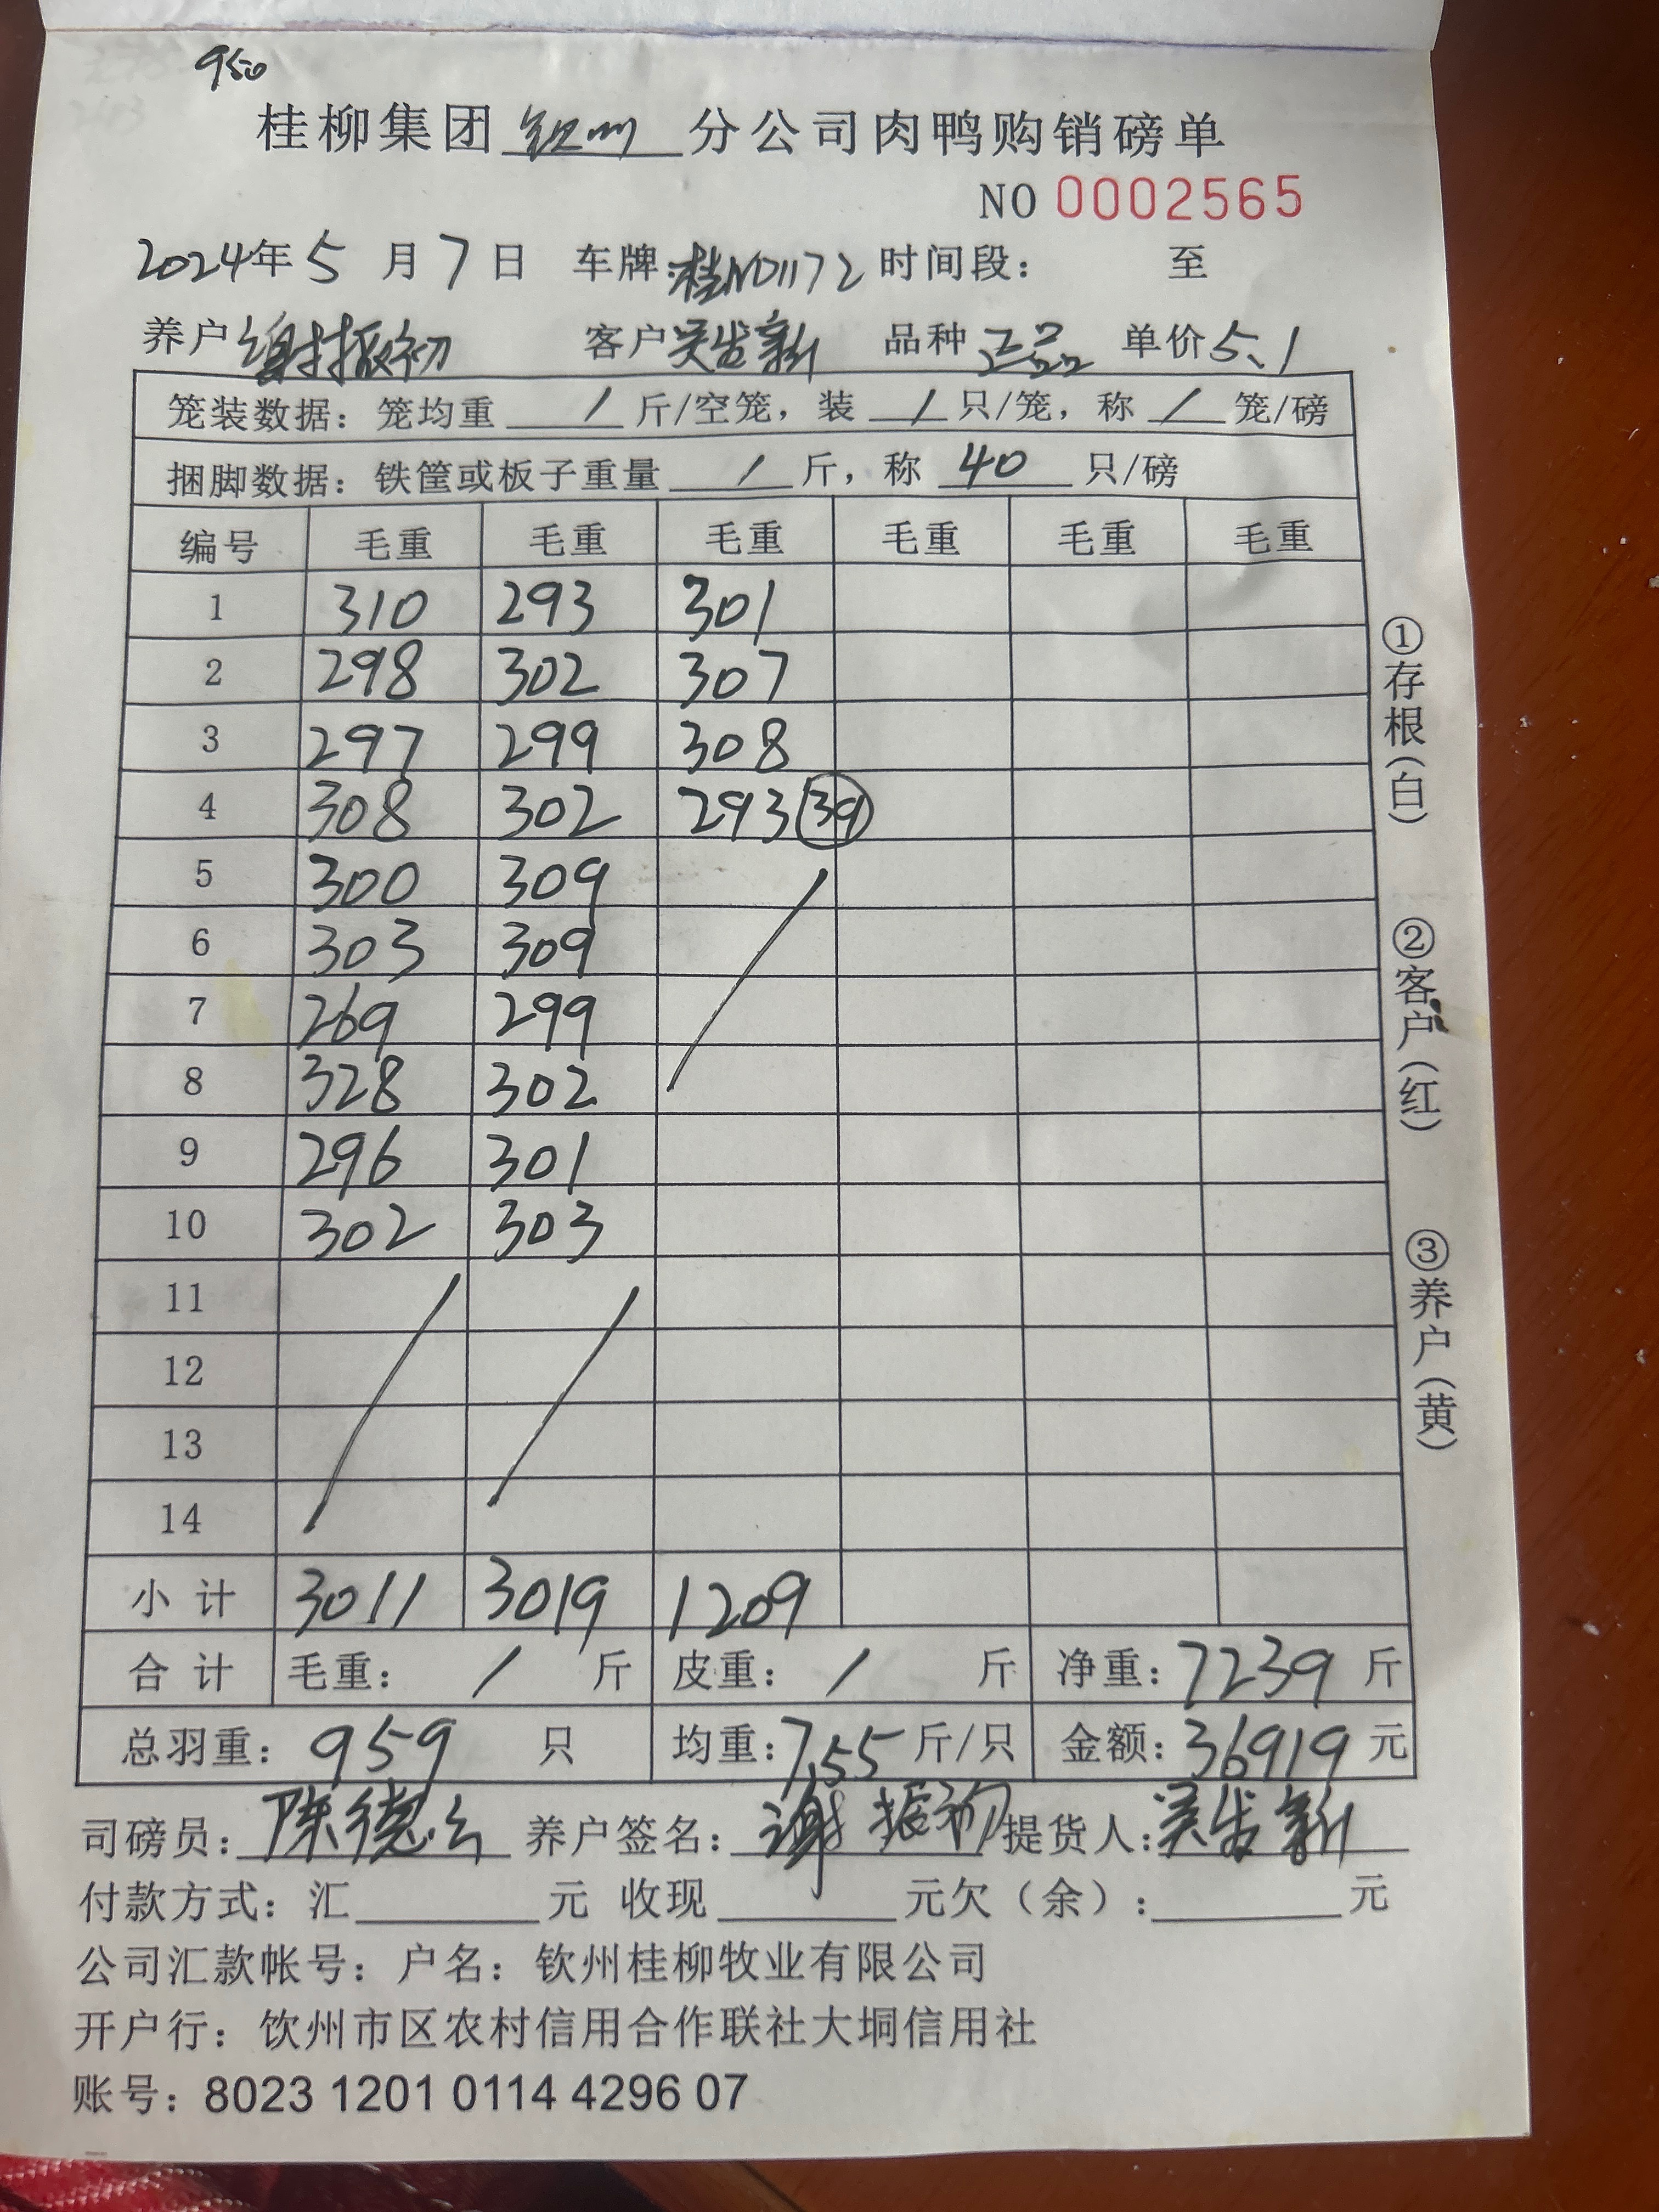 950
桂柳集团钦州分公司肉鸭购销磅单
NO 0002565
2024年5月7日 车牌:桂ND1172 时间段: 至
养户谢振初 客户吴发新 品种正品 单价5.1
笼装数据: 笼均重 / 斤/空笼, 装 / 只/笼, 称 / 笼/磅
捆脚数据: 铁筐或板子重量 / 斤, 称 40 只/磅
编号 毛重 毛重 毛重 毛重 毛重 毛重
1 310 293 301
2 298 302 307
3 297 299 308
4 308 302 293 39
5 300 309
6 303 309
7 269 299
8 328 302
9 296 301
10 302 303
11
12
13
14
小计 3011 3019 1209
合计 毛重: / 斤 皮重: / 斤 净重: 7239 斤
总羽重: 959 只 均重: 7.55 斤/只 金额: 36919 元
司磅员: 陈德云 养户签名: 谢振初 提货人: 吴发新
付款方式: 汇 元 收现 元欠(余): 元
公司汇款帐号: 户名: 钦州桂柳牧业有限公司
开户行: 饮州市区农村信用合作联社大垌信用社
账号: 8023 1201 0114 4296 07
①存根(白)
②客户(红)
③养户(黄)